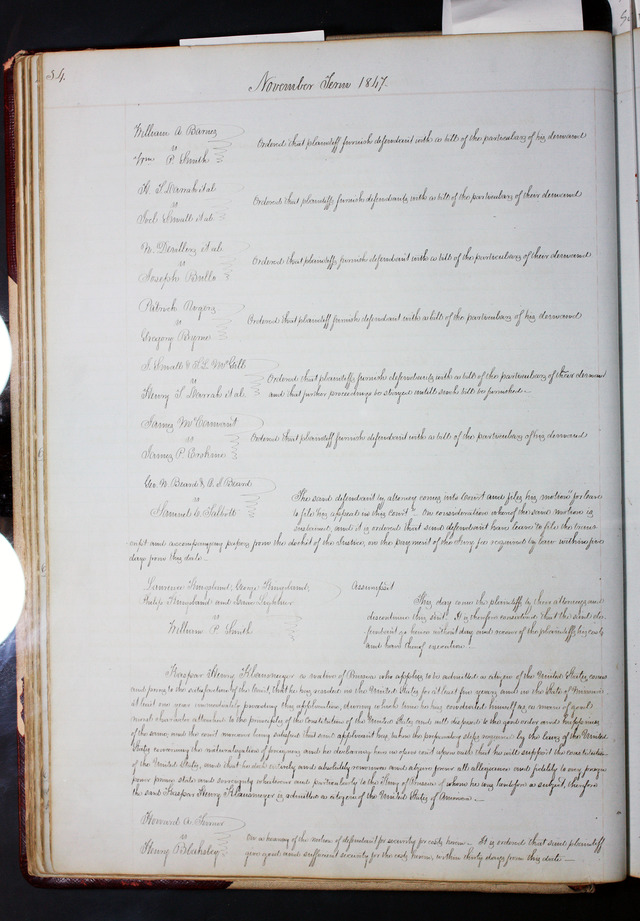 34.
November Term 1847.
William A Barnes
vs
Wm P. Smith
Ordered that plaintiff furnish defendant with a bill of the particulars of his demand
H. S. et al
vs
Joel Small et al
Ordered that plaintiffs furnish defendants with a bill of the particulars of their demand
N. et al
vs
Joseph
Ordered that plaintiffs furnish defendant with a bill of the particulars of their demand
Patrick Rogers
vs
Gregory Byrne
Ordered that plaintiff furnish defendant with a bill of the particulars of his demand
J. Small & McGill
vs
Henry S. et al
Ordered that plaintiffs furnish defendants with a bill of the particulars of their demand
and that further proceedings be stayed until such bill be furnished.
James
vs
James P. Erskine
Ordered that plaintiff furnish defendant with a bill of the particulars of his demand
Geo. W. Beard & A. S. Beard
vs
Samuel C. Talbott
The said defendant by attorney comes into Court and files his motion for leave
to file his appeal in this Court. On consideration whereof the said motion is
sustained, and it is ordered that said defendant have leave to file the
and accompanying papers from the docket of the Justice, on the payment of the Jury fee required by law within
days from this date.
Lawrence Kingsland, George Kingsland,
Philip Kingsland and
vs
William P. Smith
Assumpsit
This day come the plaintiffs by their attorneys and
discontinue this suit. It is therefore considered that the said
go hence without day and recover of the plaintiffs his costs
and have thereof execution.
Kaspar Henry Klausmeyer a native of Prussia who applies to be admitted a citizen of the United States, comes
and proves to the satisfaction of the Court, that he has resided in the United States for at least five years, and in the State of Missouri
at least one year immediately preceding this application, during which time he has conducted himself as a man of good
moral character attached to the principles of the Constitution of the United States, and well disposed to the good order and happiness
of the same, and the court moreover being satisfied that said applicant has taken the preparatory steps required by the laws of the United
States concerning the naturalization of foreigners and he declaring here in open court upon oath that he will support the constitution
of the United States, and that he doth entirely and absolutely renounce and abjure forever all allegiance and fidelity to every foreign
power prince state and sovereignty whatever and particularly to the King of Prussia of whom he was heretofore a subject, therefore
the said Kaspar Henry Klausmeyer is admitted a citizen of the United States of America.
A.
vs
Henry Blakesley
On a hearing of the motion of defendant for security for costs herein It is ordered that said plaintiff
give good and sufficient security for the costs herein, within thirty days from this date